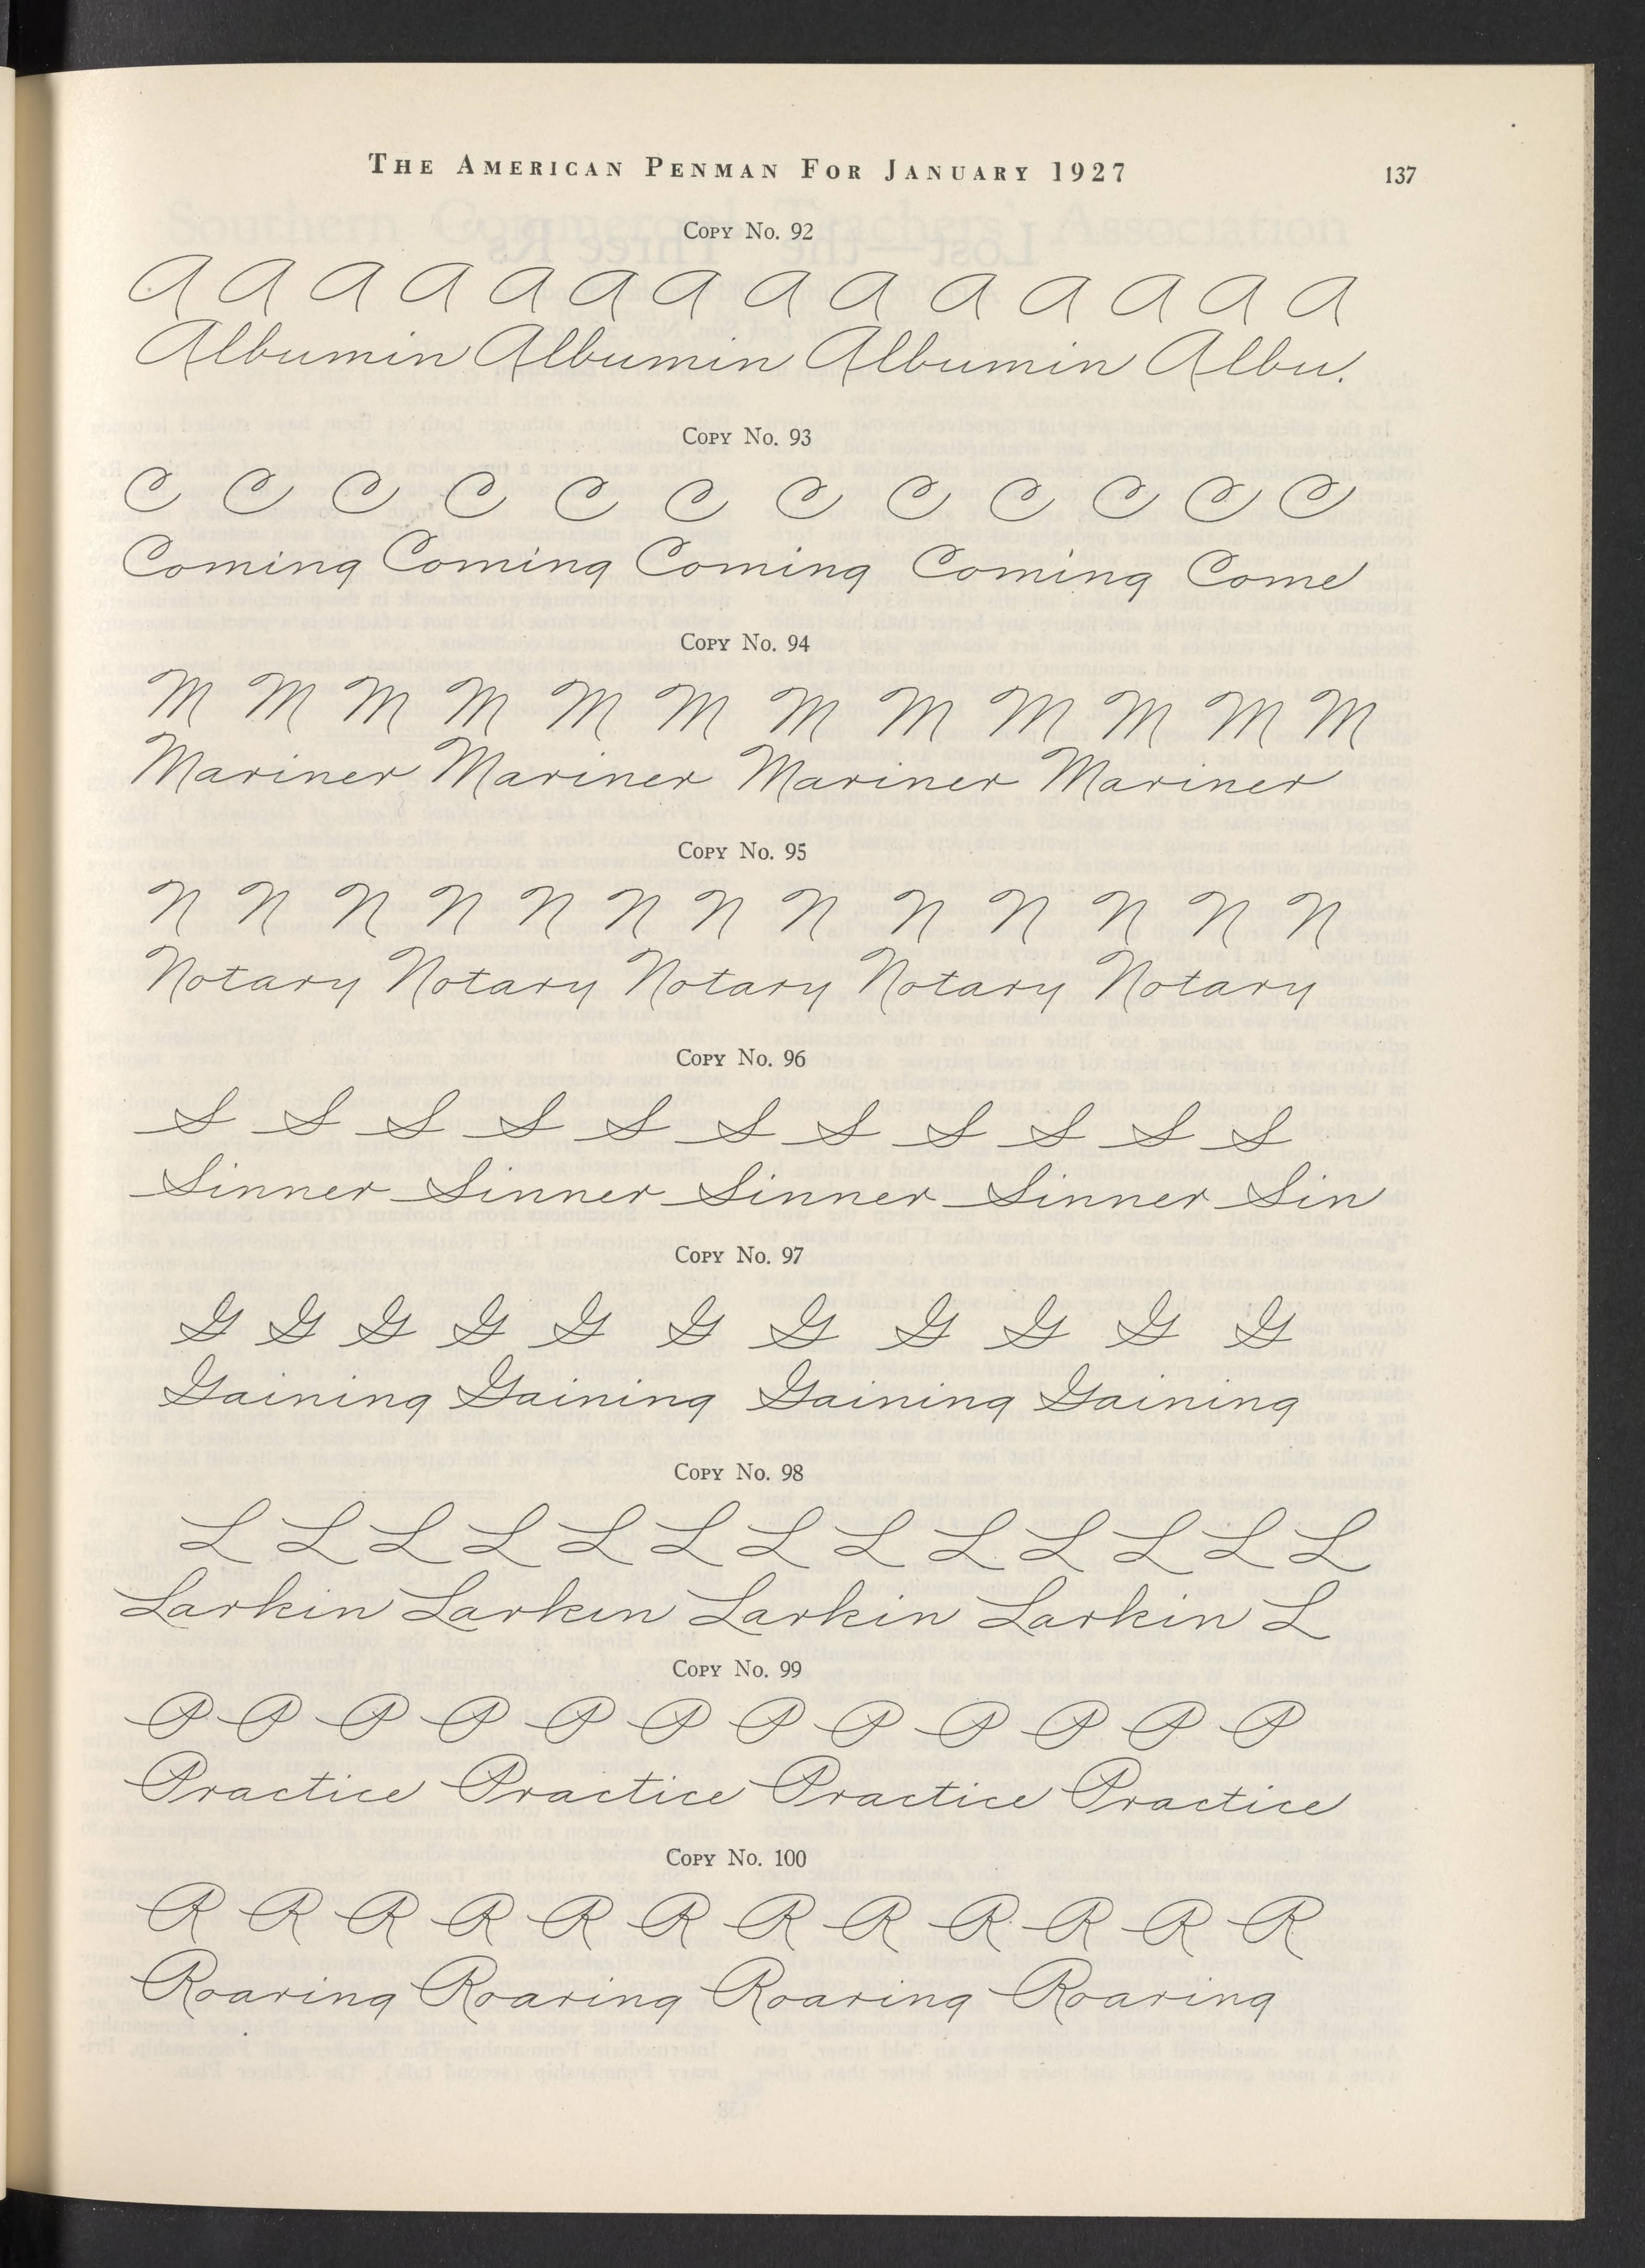 THE AMERICAN PENMAN FOR JANUARY 1927 137
COPY No. 92
A A A A A A A A A A A A A A
Albumin Albumin Albumin Albu.
COPY No. 93
C C C C C C C C C C C C
Coming Coming Coming Coming Come
COPY No. 94
M M M M M M M M M M M M
Mariner Mariner Mariner Mariner
COPY No. 95
N N N N N N N N N N N N N
Notary Notary Notary Notary Notary
COPY No. 96
S S S S S S S S S S S
Sinner Sinner Sinner Sinner Sin
COPY No. 97
G G G G G G G G G G G
Gaining Gaining Gaining Gaining
COPY No. 98
L L L L L L L L L L L L L
Larkin Larkin Larkin Larkin L
COPY No. 99
P P P P P P P P P P P P
Practice Practice Practice Practice
COPY No. 100
R R R R R R R R R R R R
Roaring Roaring Roaring Roaring